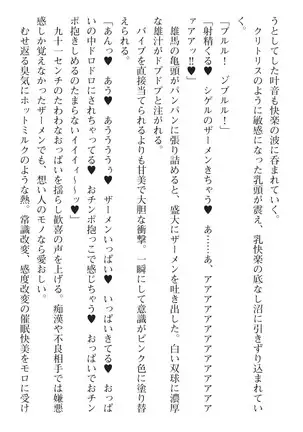 うとしてした叶音も快楽の波に呑まれていき、
クリトリスのように敏感になった乳頭が震え、乳快楽の底なし沼に引きずり込まれてい
く。
「ブルル！　ジブルル！」
「射精くる♥　シゲルのザーメンきちゃう♥　あ……あ、アアアアアアアアアアアアア
アアアッ‼♥」
雄馬の亀頭がパンパンに張り詰めると、盛大にザーメンを吐き出した。白い双球に濃厚
な雄汁がドプドプと注がれる。
バイブを直接当てられるより甘美で大胆な衝撃。一瞬にして意識がピンク色に塗り替
えられる。
「あんっ♥　あう♥　あうううぅ♥　ザーメンいっぱい♥　いっぱいきてる♥　おっぱ
いの中ドロドロにされちゃってる♥　おチンポ抱っこで感じちゃう♥　おっぱいでおチン
ポ抱きしめるのたまらないイイィィ～～ッ♥」
九十一センチのたわわなおっぱいを揺らし歓喜の声を上げる。痴漢や不良相手では嫌悪
感しか覚えなかったザーメンでも、想い人のモノなら愛おしい。
むせ返る臭気にホットミルクのような熱。常識改変、感度改変の催眠快美をモロに受け